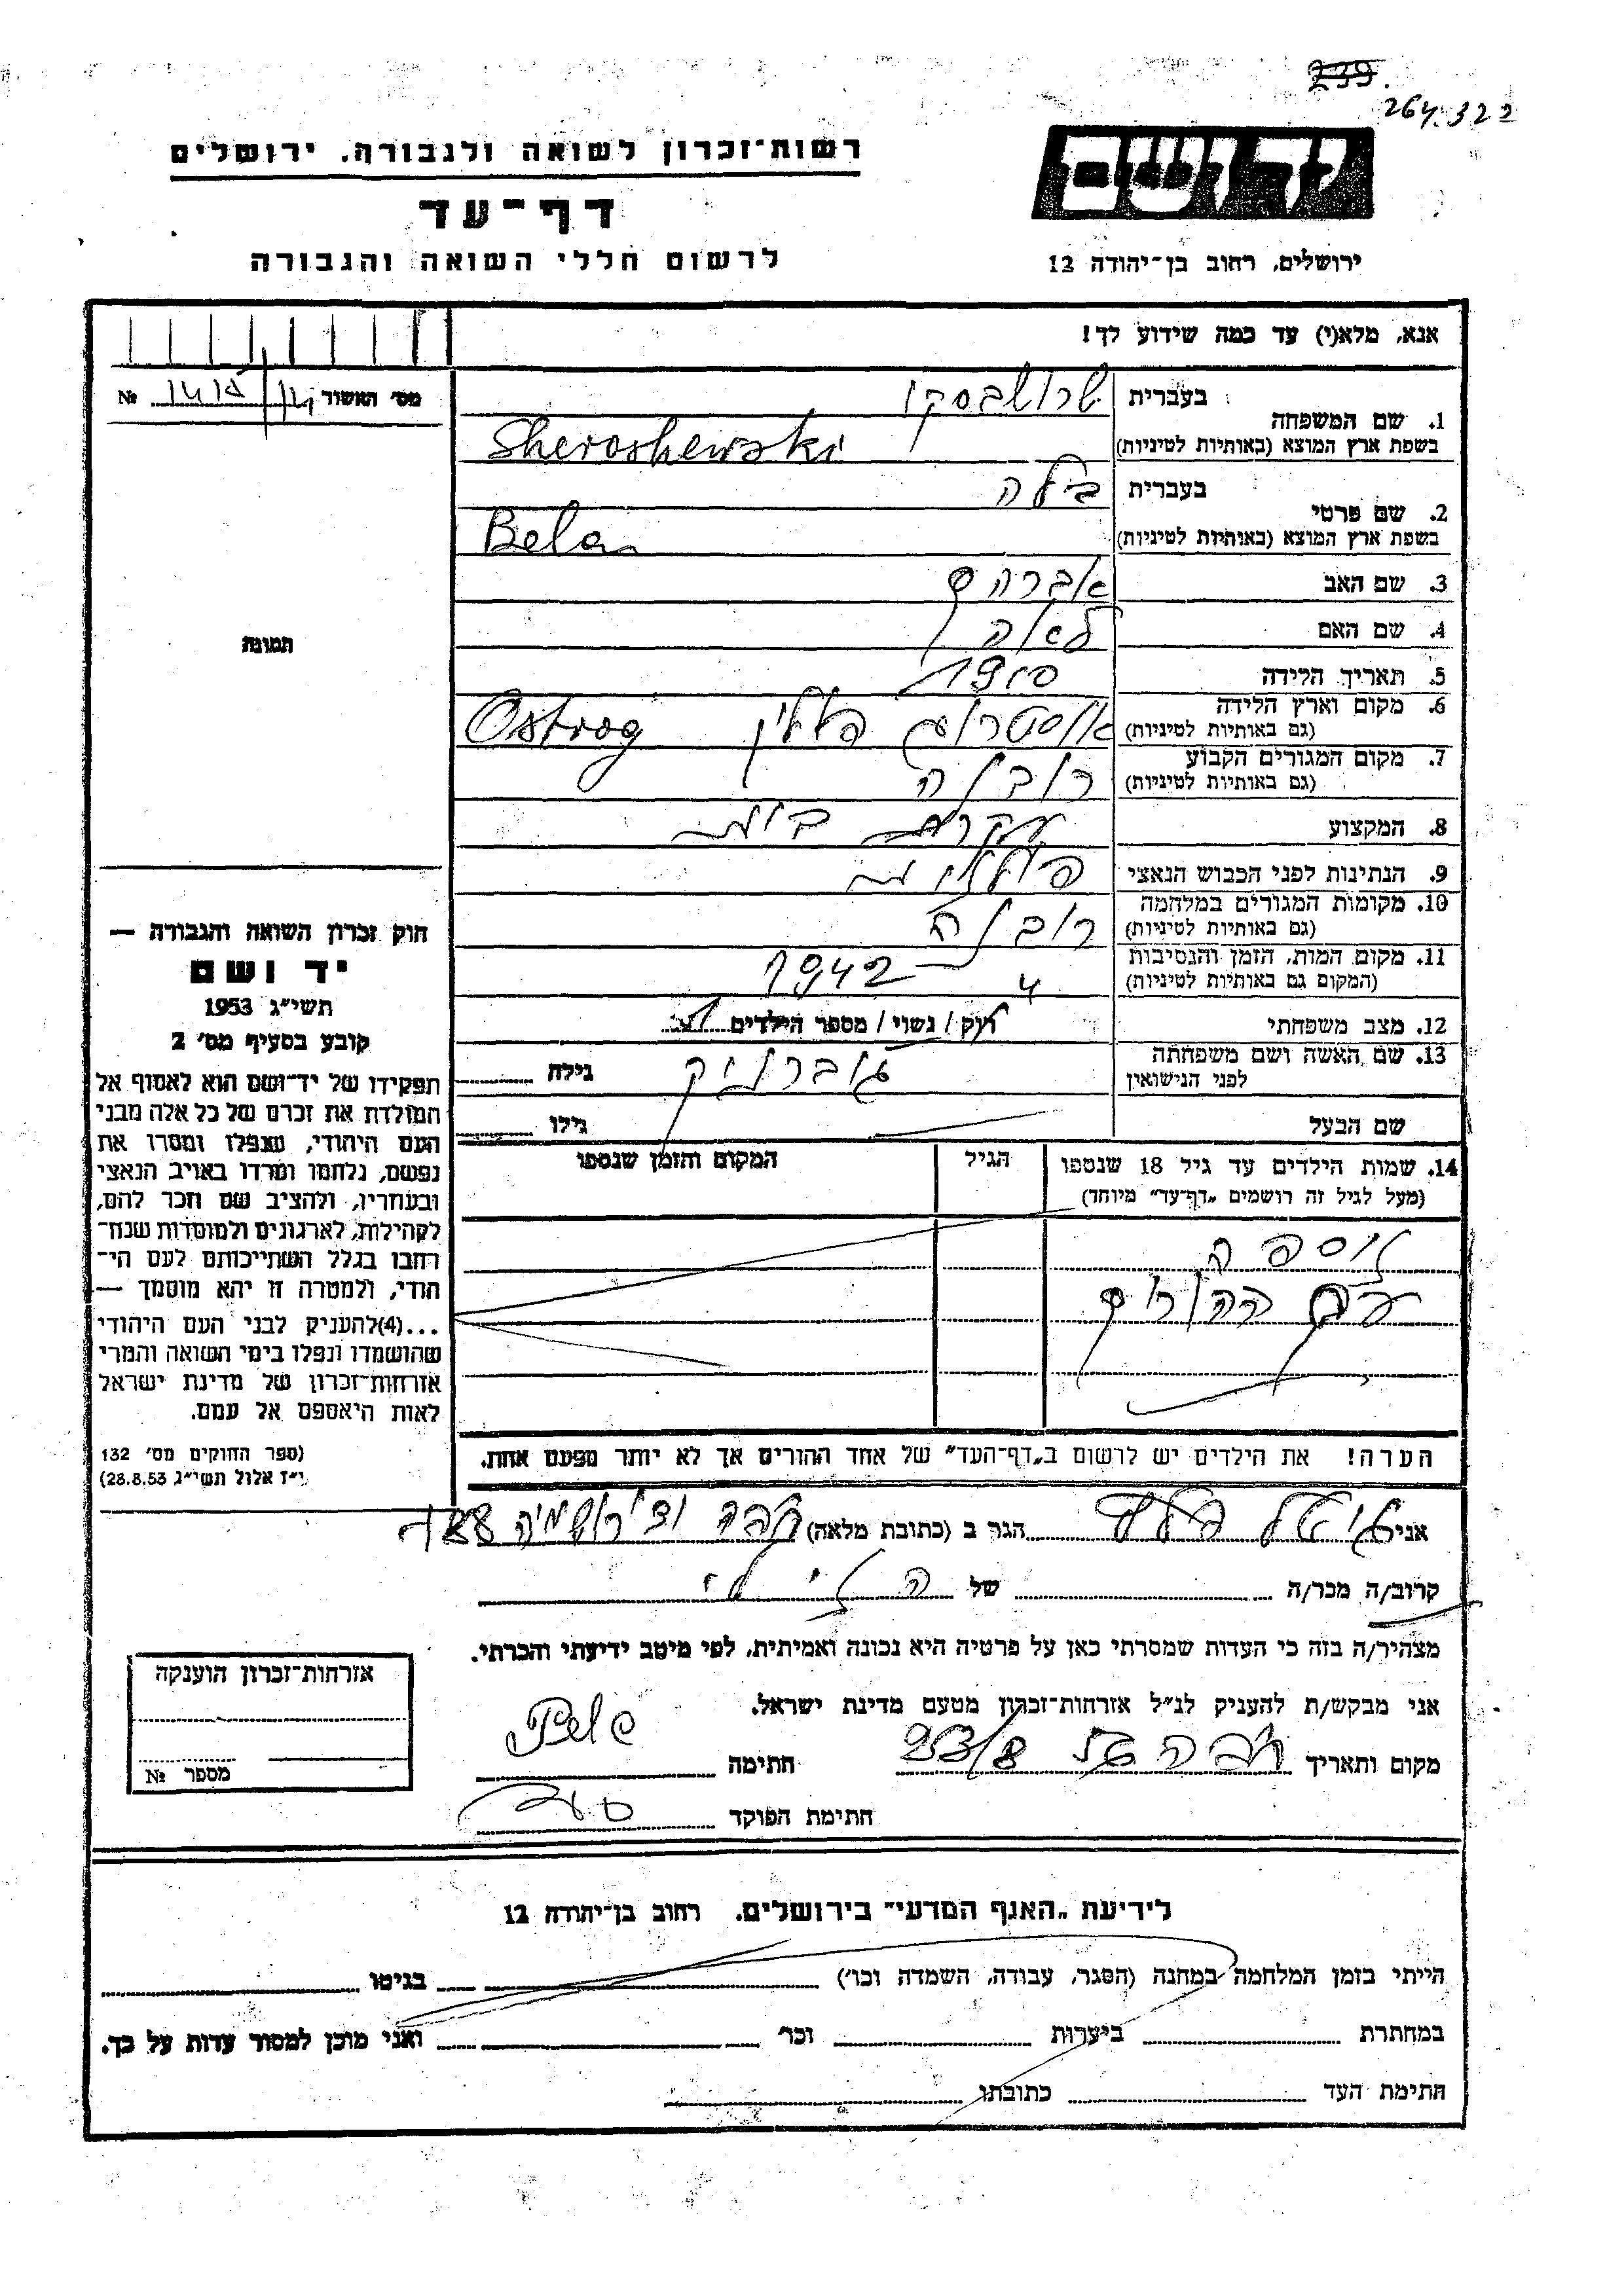 239.
264.322
רשות־זכרון לשואה ולגבורה, ירושלים
דף־עד
לרשום חללי השואה והגבורה
ידושם
ירושלים, רחוב בן־יהודה 12
אנא, מלא(י) עד כמה שידוע לך!
מס׳ האשור № 
1. שם המשפחה בעברית
בשפת ארץ המוצא (באותיות לטיניות) Sheroshewski
2. שם פרטי בעברית בילה
בשפת ארץ המוצא (באותיות לטיניות) Bela
3. שם האב אברהם
4. שם האם לאה
5. תאריך הלידה 1910
6. מקום וארץ הלידה אוסטרוג פולין Ostrog
(גם באותיות לטיניות)
7. מקום המגורים הקבוע רובנה
(גם באותיות לטיניות)
8. המקצוע עקרת בית
9. הנתינות לפני הכבוש הנאצי פולנית
10. מקומות המגורים במלחמה רובנה
(גם באותיות לטיניות)
11. מקום המות, הזמן והנסיבות 4 1942
(המקום גם באותיות לטיניות)
12. מצב משפחתי רוק / נשוי / מספר הילדים
13. שם האשה ושם משפחתה גילה
לפני הנישואין
שם הבעל גילו
14. שמות הילדים עד גיל 18 שנספו הגיל המקום והזמן שנספו
(מעל לגיל זה רושמים „דף־עד” מיוחד)
נספה
עם ההורים
הערה! את הילדים יש לרשום ב„דף־העד” של אחד ההורים אך לא יותר מפעם אחת.
תמונה
חוק זכרון השואה והגבורה —
יד ושם
תשי״ג 1953
קובע בסעיף מס׳ 2
תפקידו של יד־ושם הוא לאסוף אל
המולדת את זכרם של כל אלה מבני
העם היהודי, שנפלו ומסרו את
נפשם, נלחמו ומרדו באויב הנאצי
ובעוזריו, ולהציב שם וזכר להם,
לקהילות, לארגונים ולמוסדות שנח־
רבו בגלל השתייכותם לעם הי־
הודי, ולמטרה זו יהא מוסמך —
...(4)להעניק לבני העם היהודי
שהושמדו ונפלו בימי השואה והמרי
אזרחות־זכרון של מדינת ישראל
לאות היאספם אל עמם.
(ספר החוקים מס׳ 132
י״ז אלול תשי״ג 28.8.53)
אני הגר ב (כתובת מלאה)
קרוב/ה מכר/ה של הנ״ל
מצהיר/ה בזה כי העדות שמסרתי כאן על פרטיה היא נכונה ואמיתית, לפי מיטב ידיעתי והכרתי.
אני מבקש/ת להעניק לנ״ל אזרחות־זכרון מטעם מדינת ישראל.
מקום ותאריך חתימה
חתימת הפוקד
אזרחות־זכרון הוענקה
מספר №
לידיעת „האגף המדעי” בירושלים, רחוב בן־יהודה 12
הייתי בזמן המלחמה במחנה (הסגר, עבודה, השמדה וכו׳) בגיטו
במחתרת ביערות וכו׳ ואני מוכן למסור עדות על כך.
חתימת העד כתובתו